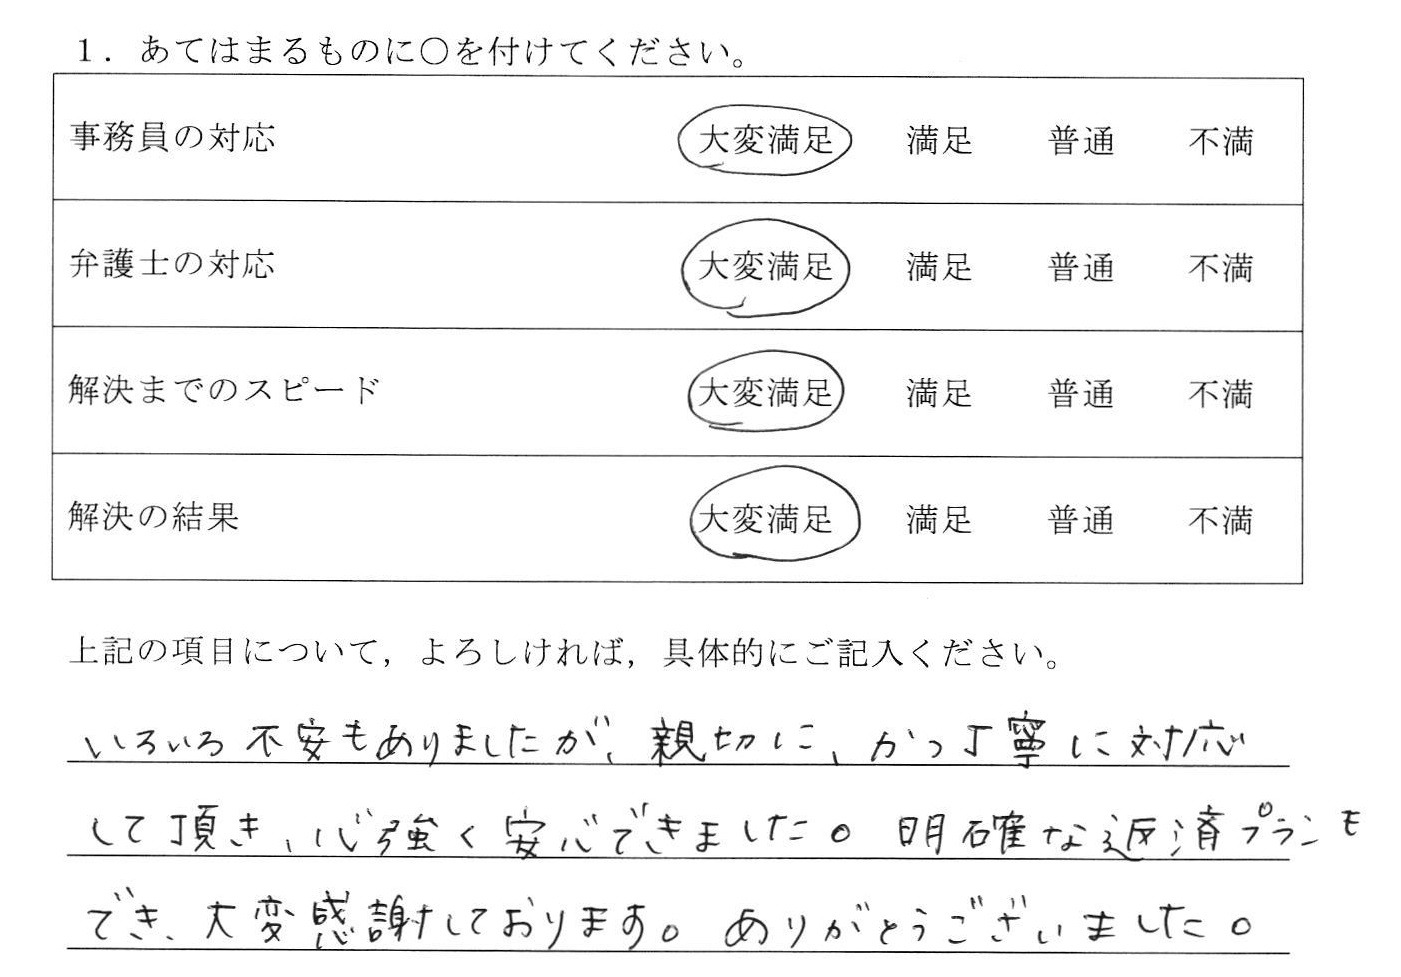 １．あてはまるものに○を付けてください。
事務員の対応 大変満足 満足 普通 不満
弁護士の対応 大変満足 満足 普通 不満
解決までのスピード 大変満足 満足 普通 不満
解決の結果 大変満足 満足 普通 不満
上記の項目について，よろしければ，具体的にご記入ください。
いろいろ不安もありましたが、親切に、かつ丁寧に対応
して頂き、心強く安心できました。明確な返済プランも
でき、大変感謝しております。ありがとうございました。